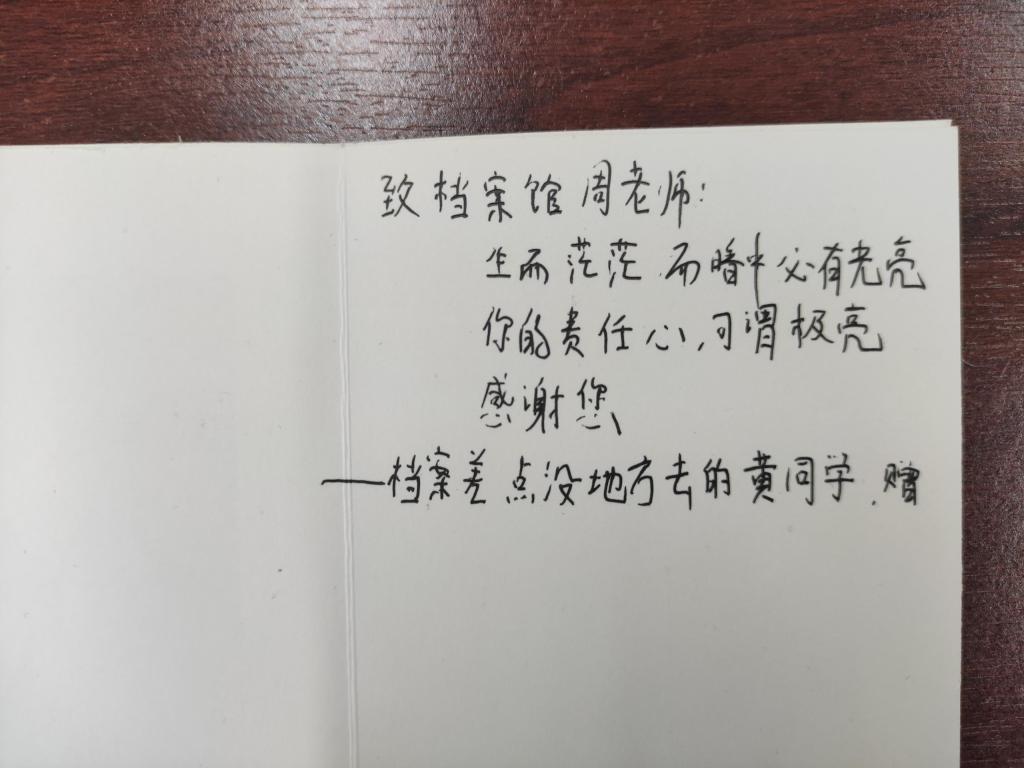 致档案馆周老师:
生而茫茫 而暗中必有光亮
你的责任心,可谓极亮
感谢您
——档案差点没地方去的黄同学.赠